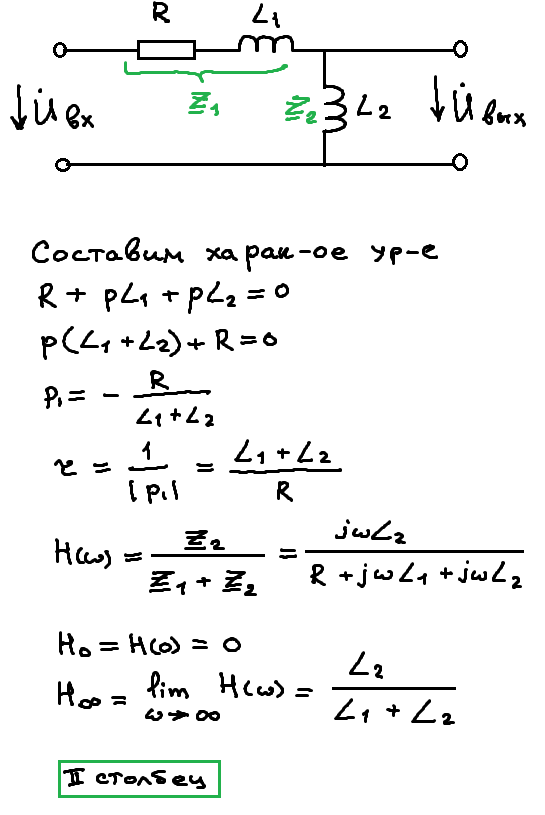 R L₁
Z₁ Z₂ L₂
↓ U̇вх ↓ U̇вых
Составим харак-ое ур-е
R + pL₁ + pL₂ = 0
p(L₁ + L₂) + R = 0
p₁ = - R / (L₁ + L₂)
τ = 1 / |p₁| = (L₁ + L₂) / R
H(ω) = Z₂ / (Z₁ + Z₂) = jωL₂ / (R + jωL₁ + jωL₂)
H₀ = H(0) = 0
H∞ = lim ω→∞ H(ω) = L₂ / (L₁ + L₂)
II столбец